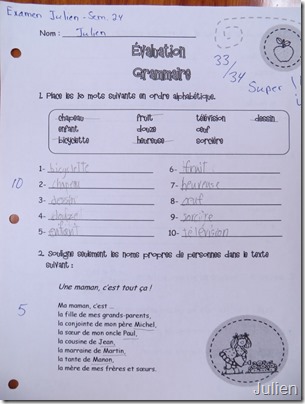 Examen Julien - Sem. 24
Nom : Julien
Évaluation
Grammaire
33/34
Super !
1. Place les 10 mots suivants en ordre alphabétique.
chapeau fruit télévision dessin
enfant douze œuf
bicyclette heureuse sorcière
1- bicyclette
2- chapeau
3- dessin
4- douze
5- enfant
6- fruit
7- heureuse
8- œuf
9- sorcière
10- télévision
10
2. Souligne seulement les noms propres de personnes dans le texte
suivant :
Une maman, c'est tout ça !
5
Ma maman, c'est ...
la fille de mes grands-parents,
la conjointe de mon père Michel,
la sœur de mon oncle Paul,
la cousine de Jean,
la marraine de Martin,
la tante de Manon,
la mère de mes frères et sœurs.
Julien